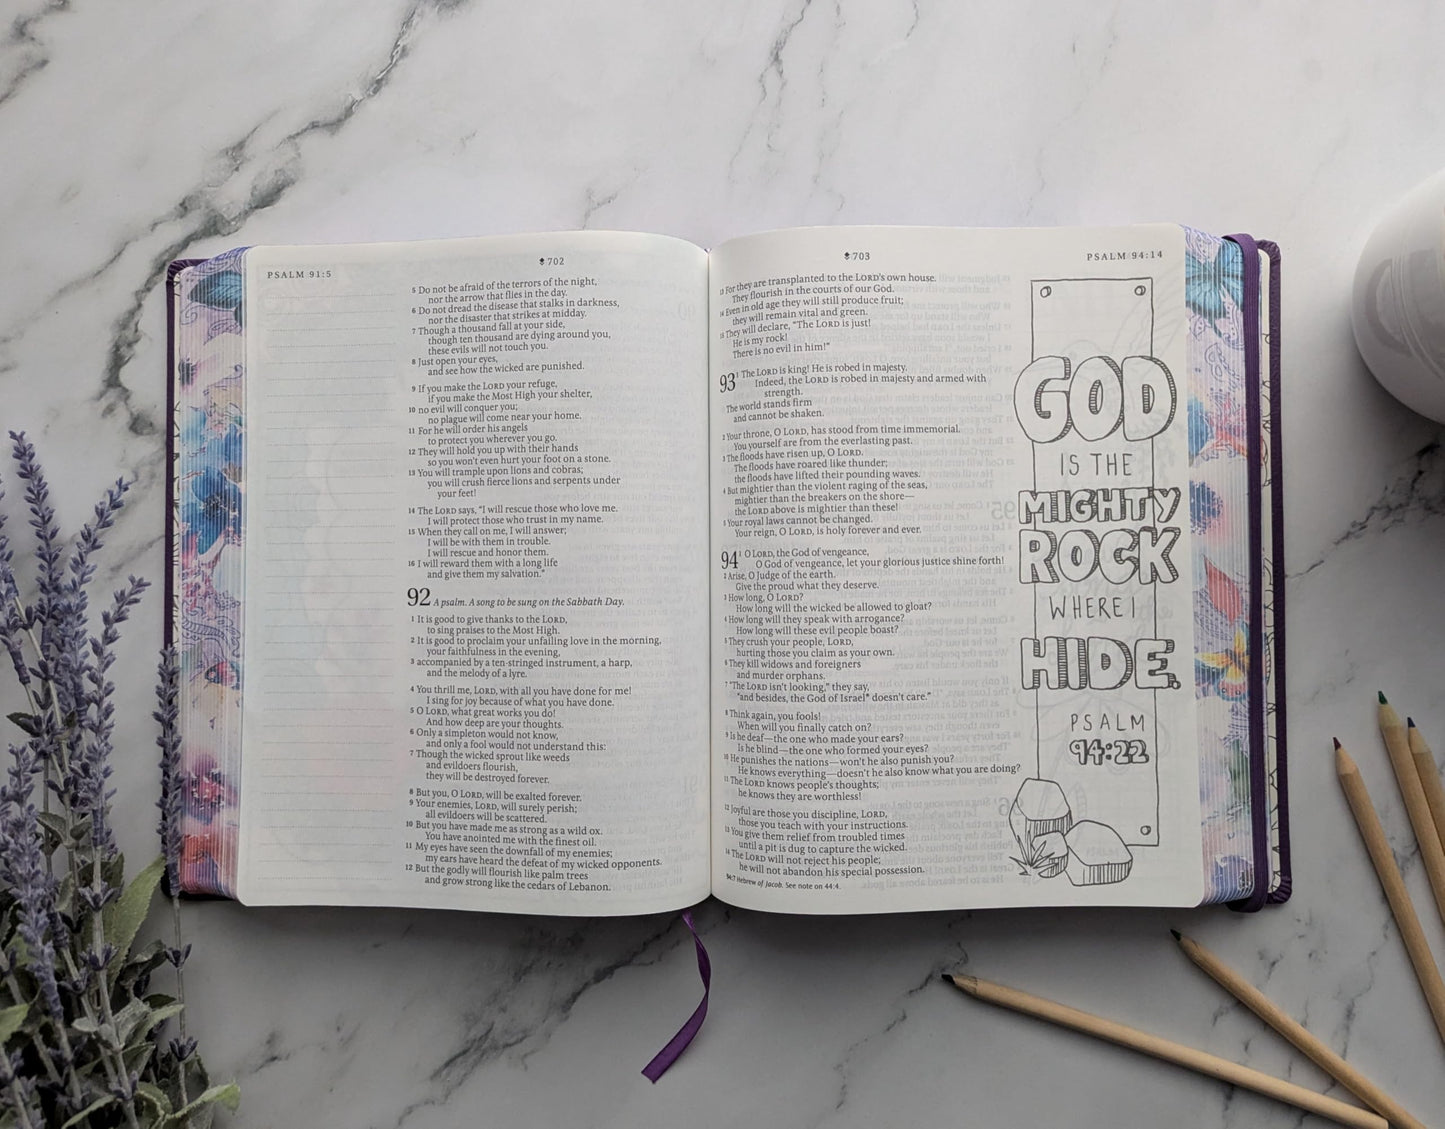 PSALM 91:5
702
5 Do not be afraid of the terrors of the night,
nor the arrow that flies in the day.
6 Do not dread the disease that stalks in darkness,
nor the disaster that strikes at midday.
7 Though a thousand fall at your side,
though ten thousand are dying around you,
these evils will not touch you.
8 Just open your eyes,
and see how the wicked are punished.
9 If you make the LORD your refuge,
if you make the Most High your shelter,
10 no evil will conquer you;
no plague will come near your home.
11 For he will order his angels
to protect you wherever you go.
12 They will hold you up with their hands
so you won't even hurt your foot on a stone.
13 You will trample upon lions and cobras;
you will crush fierce lions and serpents under
your feet!
14 The LORD says, "I will rescue those who love me.
I will protect those who trust in my name.
15 When they call on me, I will answer;
I will be with them in trouble.
I will rescue and honor them.
16 I will reward them with a long life
and give them my salvation."
92 A psalm. A song to be sung on the Sabbath Day.
1 It is good to give thanks to the LORD,
to sing praises to the Most High.
2 It is good to proclaim your unfailing love in the morning,
your faithfulness in the evening,
3 accompanied by a ten-stringed instrument, a harp,
and the melody of a lyre.
4 You thrill me, LORD, with all you have done for me!
I sing for joy because of what you have done.
5 O LORD, what great works you do!
And how deep are your thoughts.
6 Only a simpleton would not know,
and only a fool would not understand this:
7 Though the wicked sprout like weeds
and evildoers flourish,
they will be destroyed forever.
8 But you, O LORD, will be exalted forever.
9 Your enemies, LORD, will surely perish;
all evildoers will be scattered.
10 But you have made me as strong as a wild ox.
You have anointed me with the finest oil.
11 My eyes have seen the downfall of my enemies;
my ears have heard the defeat of my wicked opponents.
12 But the godly will flourish like palm trees
and grow strong like the cedars of Lebanon.
703
PSALM 94:14
13 For they are transplanted to the LORD's own house.
They flourish in the courts of our God.
14 Even in old age they will still produce fruit;
they will remain vital and green.
15 They will declare, "The LORD is just!
He is my rock!
There is no evil in him!"
93 1 The LORD is king! He is robed in majesty.
Indeed, the LORD is robed in majesty and armed with
strength.
The world stands firm
and cannot be shaken.
2 Your throne, O LORD, has stood from time immemorial.
You yourself are from the everlasting past.
3 The floods have risen up, O LORD.
The floods have roared like thunder;
the floods have lifted their pounding waves.
4 But mightier than the violent raging of the seas,
mightier than the breakers on the shore—
the LORD above is mightier than these!
5 Your royal laws cannot be changed.
Your reign, O LORD, is holy forever and ever.
94 1 O LORD, the God of vengeance,
O God of vengeance, let your glorious justice shine forth!
2 Arise, O Judge of the earth.
Give the proud what they deserve.
3 How long, O LORD?
How long will the wicked be allowed to gloat?
4 How long will they speak with arrogance?
How long will these evil people boast?
5 They crush your people, LORD,
hurting those you claim as your own.
6 They kill widows and foreigners
and murder orphans.
7 "The LORD isn't looking," they say,
"and besides, the God of Israel* doesn't care."
8 Think again, you fools!
When will you finally catch on?
9 Is he deaf—the one who made your ears?
Is he blind—the one who formed your eyes?
10 He punishes the nations—won't he also punish you?
He knows everything—doesn't he also know what you are doing?
11 The LORD knows people's thoughts;
he knows they are worthless!
12 Joyful are those you discipline, LORD,
those you teach with your instructions.
13 You give them relief from troubled times
until a pit is dug to capture the wicked.
14 The LORD will not reject his people;
he will not abandon his special possession.
94:7 Hebrew of Jacob. See note on 44:4.
GOD
IS THE
MIGHTY
ROCK
WHERE I
HIDE.
PSALM
94:22